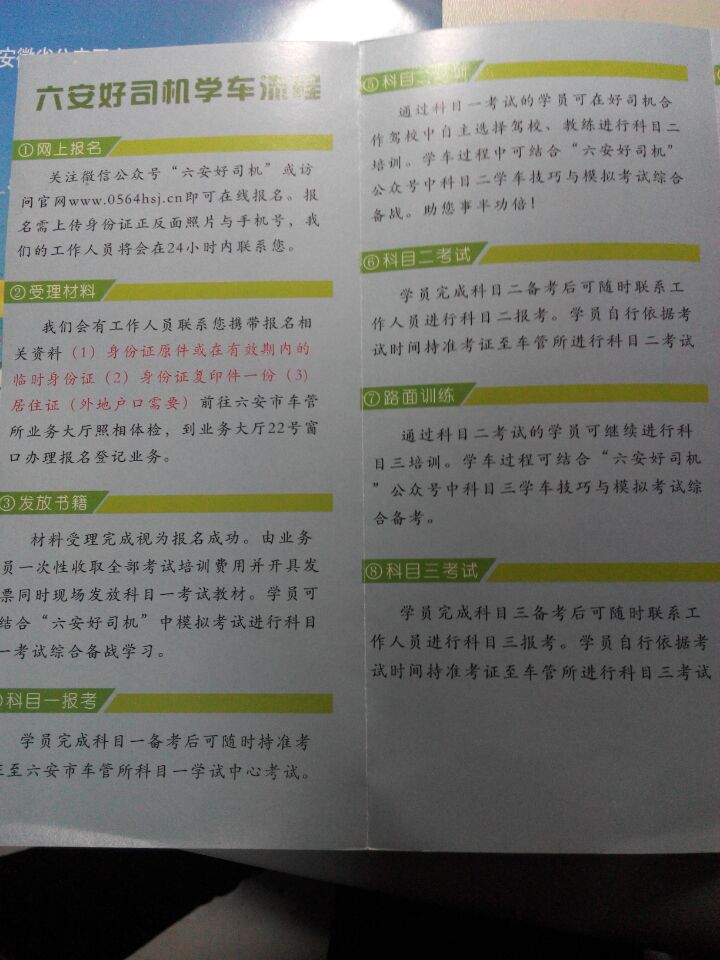 安徽省
六安好司机学车流程
①网上报名
关注微信公众号“六安好司机”或访
问官网www.0564hsj.cn即可在线报名。报
名需上传身份证正反面照片与手机号，我
们的工作人员将会在24小时内联系您。
②受理材料
我们会有工作人员联系您携带报名相
关资料（1）身份证原件或在有效期内的
临时身份证（2）身份证复印件一份（3）
居住证（外地户口需要）前往六安市车管
所业务大厅照相体检，到业务大厅22号窗
口办理报名登记业务。
③发放书籍
材料受理完成视为报名成功。由业务
员一次性收取全部考试培训费用并开具发
票同时现场发放科目一考试教材。学员可
结合“六安好司机”中模拟考试进行科目
一考试综合备战学习。
科目一报考
学员完成科目一备考后可随时持准考
证至六安市车管所科目一学试中心考试。
⑤科目二培训
通过科目一考试的学员可在好司机合
作驾校中自主选择驾校、教练进行科目二
培训。学车过程中可结合“六安好司机”
公众号中科目二学车技巧与模拟考试综合
备战。助您事半功倍！
⑥科目二考试
学员完成科目二备考后可随时联系工
作人员进行科目二报考。学员自行依据考
试时间持准考证至车管所进行科目二考试
⑦路面训练
通过科目二考试的学员可继续进行科
目三培训。学车过程可结合“六安好司机
”公众号中科目三学车技巧与模拟考试综
合备考。
⑧科目三考试
学员完成科目三备考后可随时联系工
作人员进行科目三报考。学员自行依据考
试时间持准考证至车管所进行科目三考试